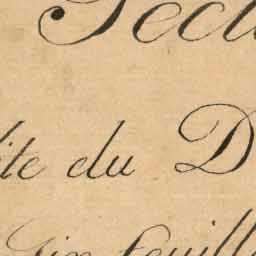 Sect
ite du D
Six feuill